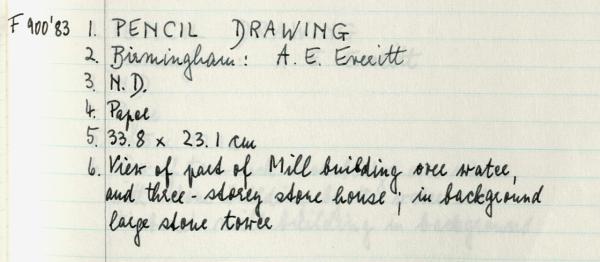 F 900'83 1. PENCIL DRAWING
2. Birmingham: A. E. Everitt
3. N.D.
4. Paper
5. 33.8 x 23.1 cm
6. View of part of Mill building over water,
and three-storey stone house; in background
large stone tower